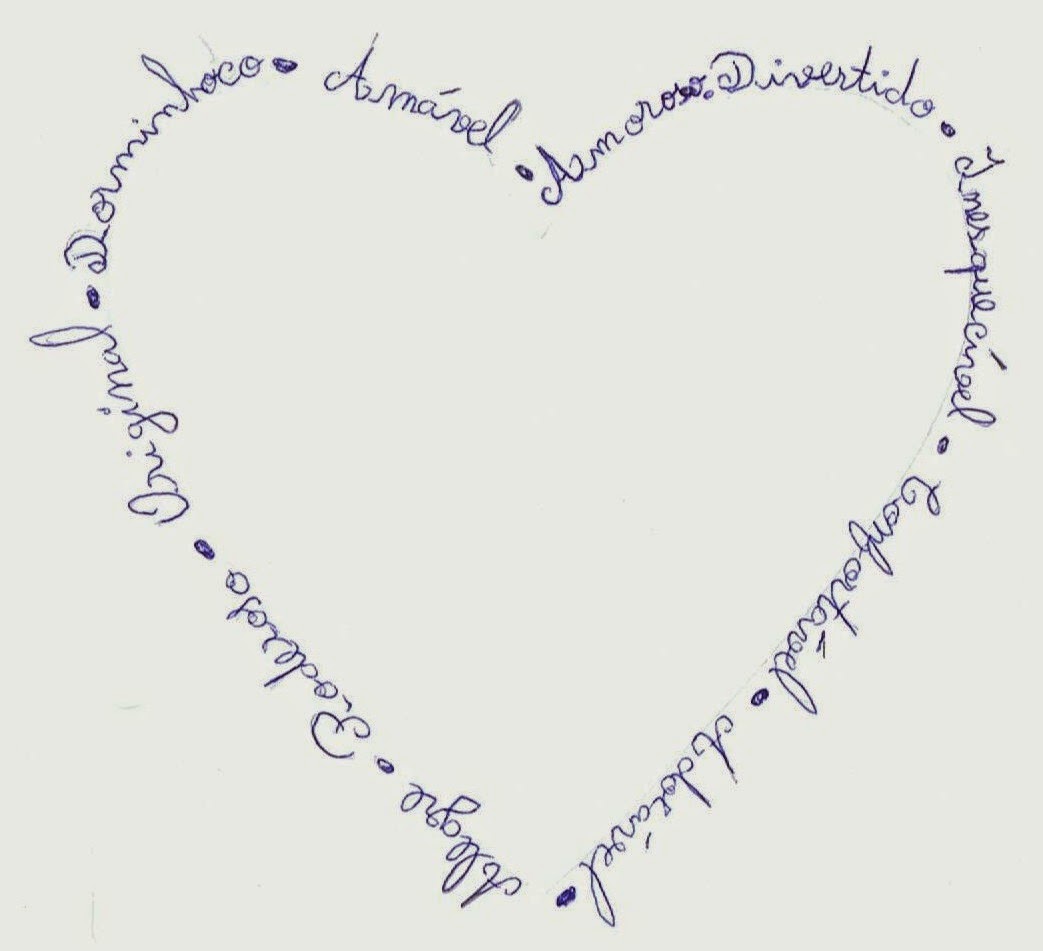 Amoroso. Divertido . Inesquecível . Confortável . Adorável . Alegre . Poderoso . Original . Dorminhoco . Amável .